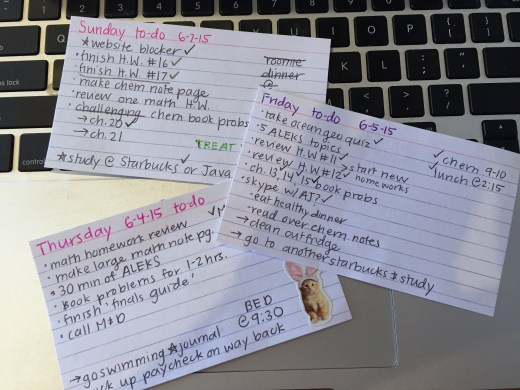 Sunday to-do 6-7-15
★website blocker ✓
• finish H.W. #16 ✓
• finish H.W. #17 ✓
• make chem note page
• review one math H.W.
• challenging chem book probs
→ ch. 20 ✓
→ ch. 21
★study @ Starbucks or Java ✓
roomie
dinner
TREAT
Friday to-do 6-5-15
• take ocean geo quiz ✓
• 5 ALEKS topics ✓
• review H.W #11 ✓
• review H.W. #12 ✓
start new
homeworks
• ch. 13, 14, 15 book probs
• skype w/AJ? ✓
• eat healthy dinner
• read over chem notes
→ clean out fridge
→ go to another starbucks & study
✓ chem 9-10
✓ lunch @ 2:15
Thursday 6-4-15 to-do
• math homework review
• make large math note pg.
• 30 min of ALEKS
• Book problems for 1-2 hrs.
• finish 'finals guide'
• call M&D
BED
@ 9:30
→ go swimming ★journal
up paycheck on way back
control